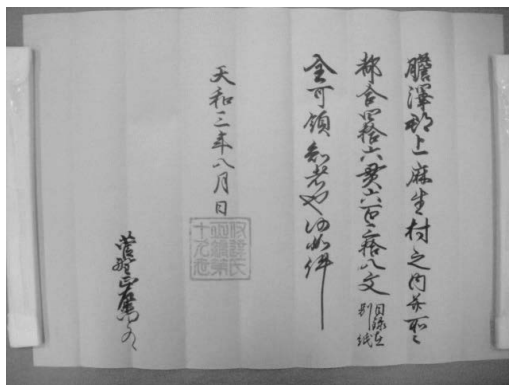 膽澤郡上麻生村之内并所々
都合四拾六貫六百三拾八文
目録在
別紙
全可領知者也仍如件
天和三年八月日